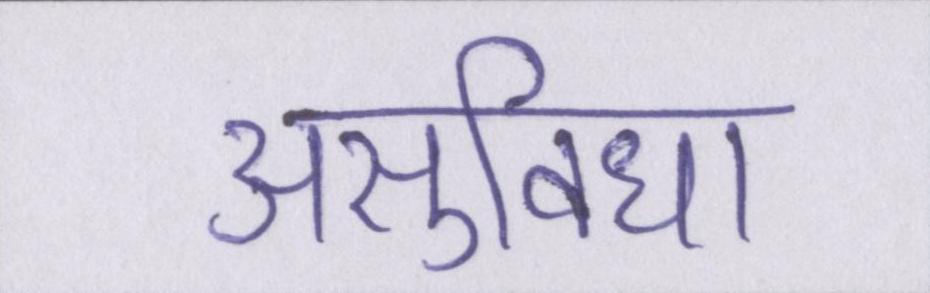 असुविधा